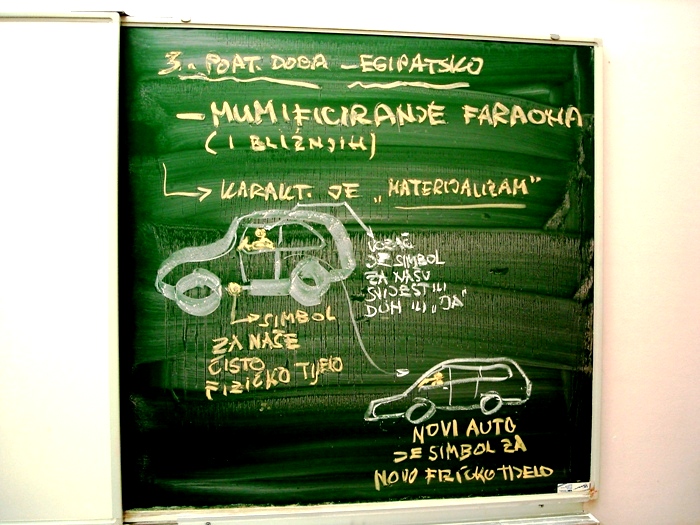 3. POAT. DOBA – EGIPATSKO
– MUMIFICIRANJE FARAONA
( I BLIŽNJIH )
KARAKT. JE „MATERIJALIZAM"
VOZAČ
JE SIMBOL
ZA NAŠU
SVIJEST ILI
DUH ILI „JA"
SIMBOL
ZA NAŠE
ČISTO
FIZIČKO TIJELO
NOVI AUTO
JE SIMBOL ZA
NOVO FIZIČKO TIJELO